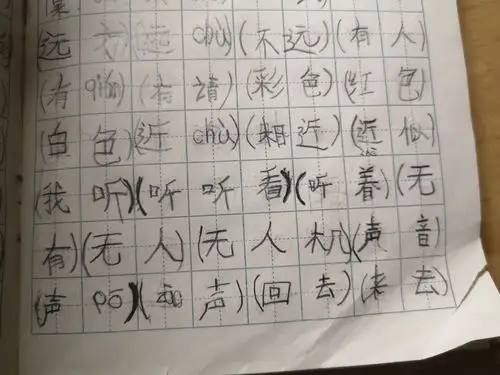 远方(远chù)(不远)(有人)
(有qíng)(有请)(彩色)(红色)
(白色)(近chù)(相近)(近似)
(我听)(听听看)(听着)(无
有)(无人)(无人机)(声音)
(声pō)(声)(回去)(来去)